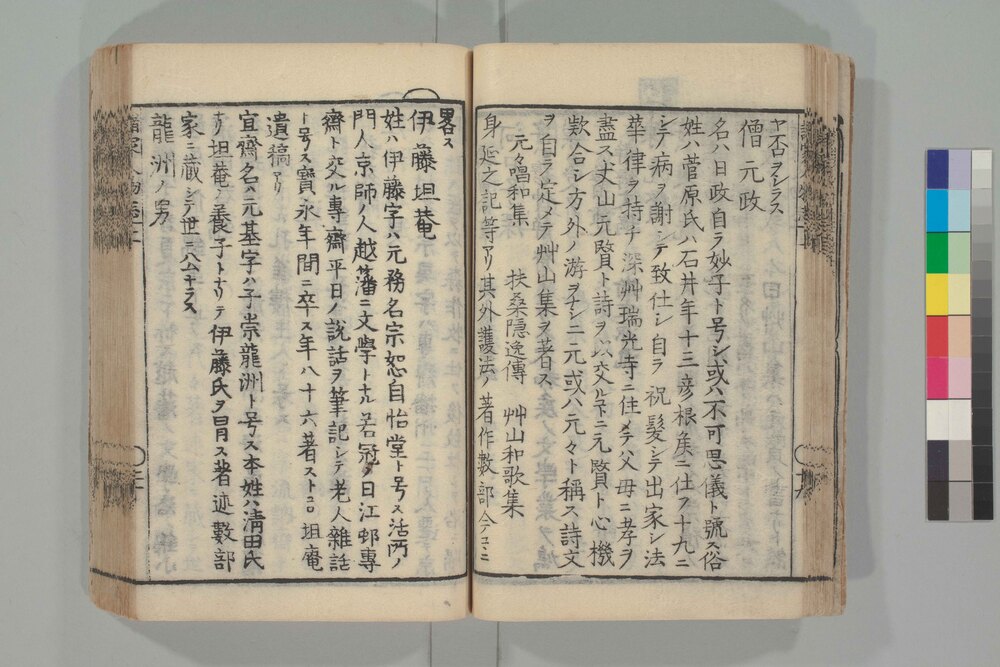 ヤ否ヲシラス
僧元政
名ハ日政自ラ妙子ト号シ或ハ不可思議ト號ス俗
姓ハ菅原氏ハ石井年十三彦根矦ニ仕フ十九ニ
シテ病ヲ謝シテ致仕シ自ラ祝髪シテ出家シ法
華律ヲ持チ深艸瑞光寺ニ住メテ父母ニ孝ヲ
盡ス丈山元贇ト詩ヲ以交ル下ニ元贇ト心機
欵合シ方外ノ游ヲナシ二元或ハ元々ト稱ス詩文
ヲ自ラ定メテ艸山集ヲ著ス
元々唱和集 扶桑隠逸傳 艸山和歌集
身延之記等アリ其外護法ノ著作数部今コヽニ
畧ス
伊藤坦菴
姓ハ伊藤字ハ元務名宗恕自怡堂ト号ス活所ノ
門人京師人越藩ニ文學トナル若冠ノ日江邨專
齋ト交ル專齋平日ノ説話ヲ筆記シテ老人雜話
ト号ス寳永年間ニ卒ス年八十六著ストコロ坦庵
遺稿アリ
宜齋名ハ元基字ハ子崇龍洲ト号ス本姓ハ清田氏
ナリ坦菴ノ養子トナリテ伊藤氏ヲ冒ス著述數部
家ニ藏シテ世ニ公ケナラス
龍洲ノ男